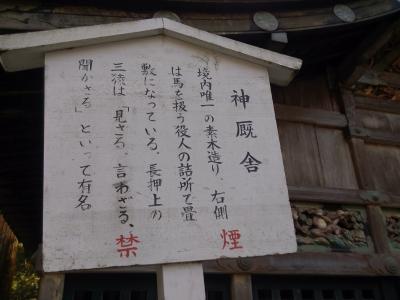 神厩舎
境内唯一の素木造り、右側
は馬を扱う役人の詰所で畳
敷になっている。長押上の
三猿は「見ざる、言わざる、
聞かざる」といって有名
禁煙